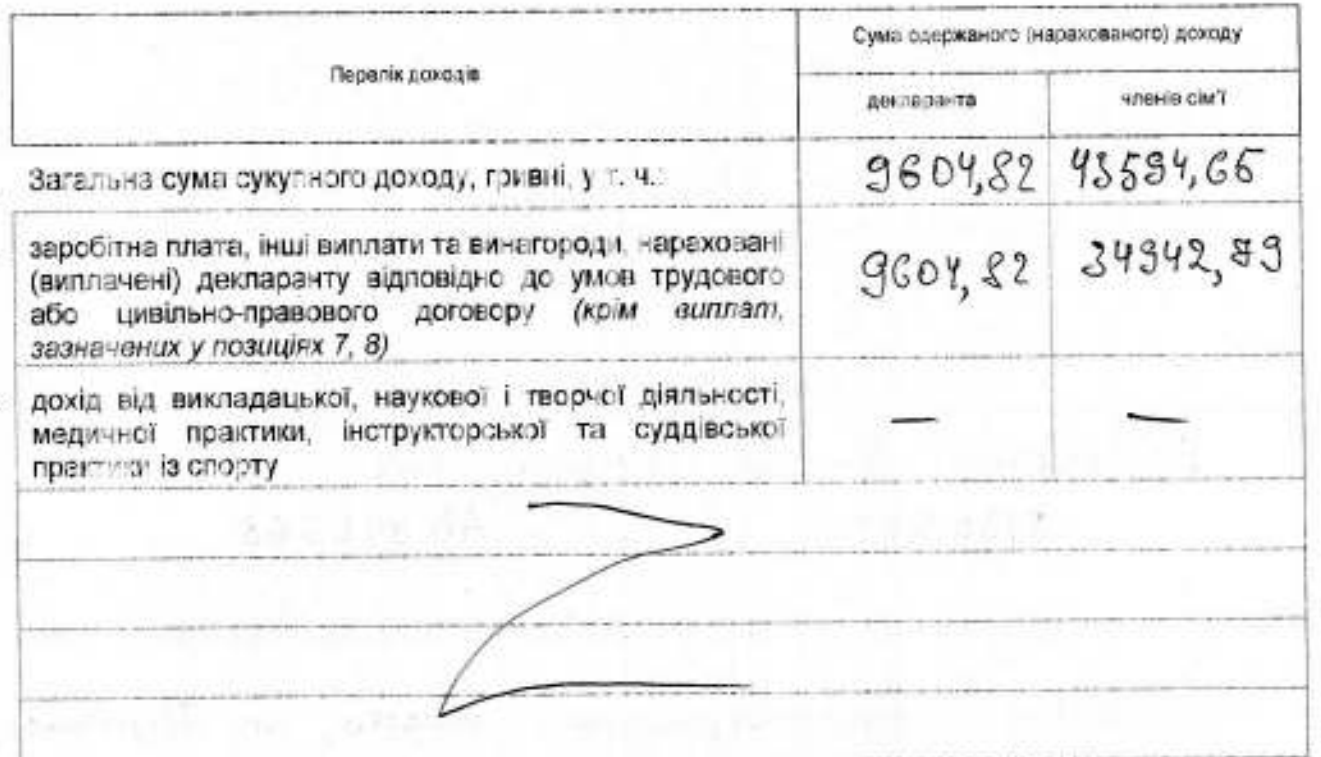 Перелік доходів
Сума одержаного (нарахованого) доходу
декларанта
членів сім'ї
Загальна сума сукупного доходу, гривні, у т. ч.:
9604,82
заробітна плата, інші виплати та винагороди, нараховані
(виплачені) декларанту відповідно до умов трудового
або цивільно-правового договору (крім виплат,
зазначених у позиціях 7, 8)
9604,82
дохід від викладацької, наукової і творчої діяльності,
медичної практики, інструкторської та суддівської
практики із спорту
—
—